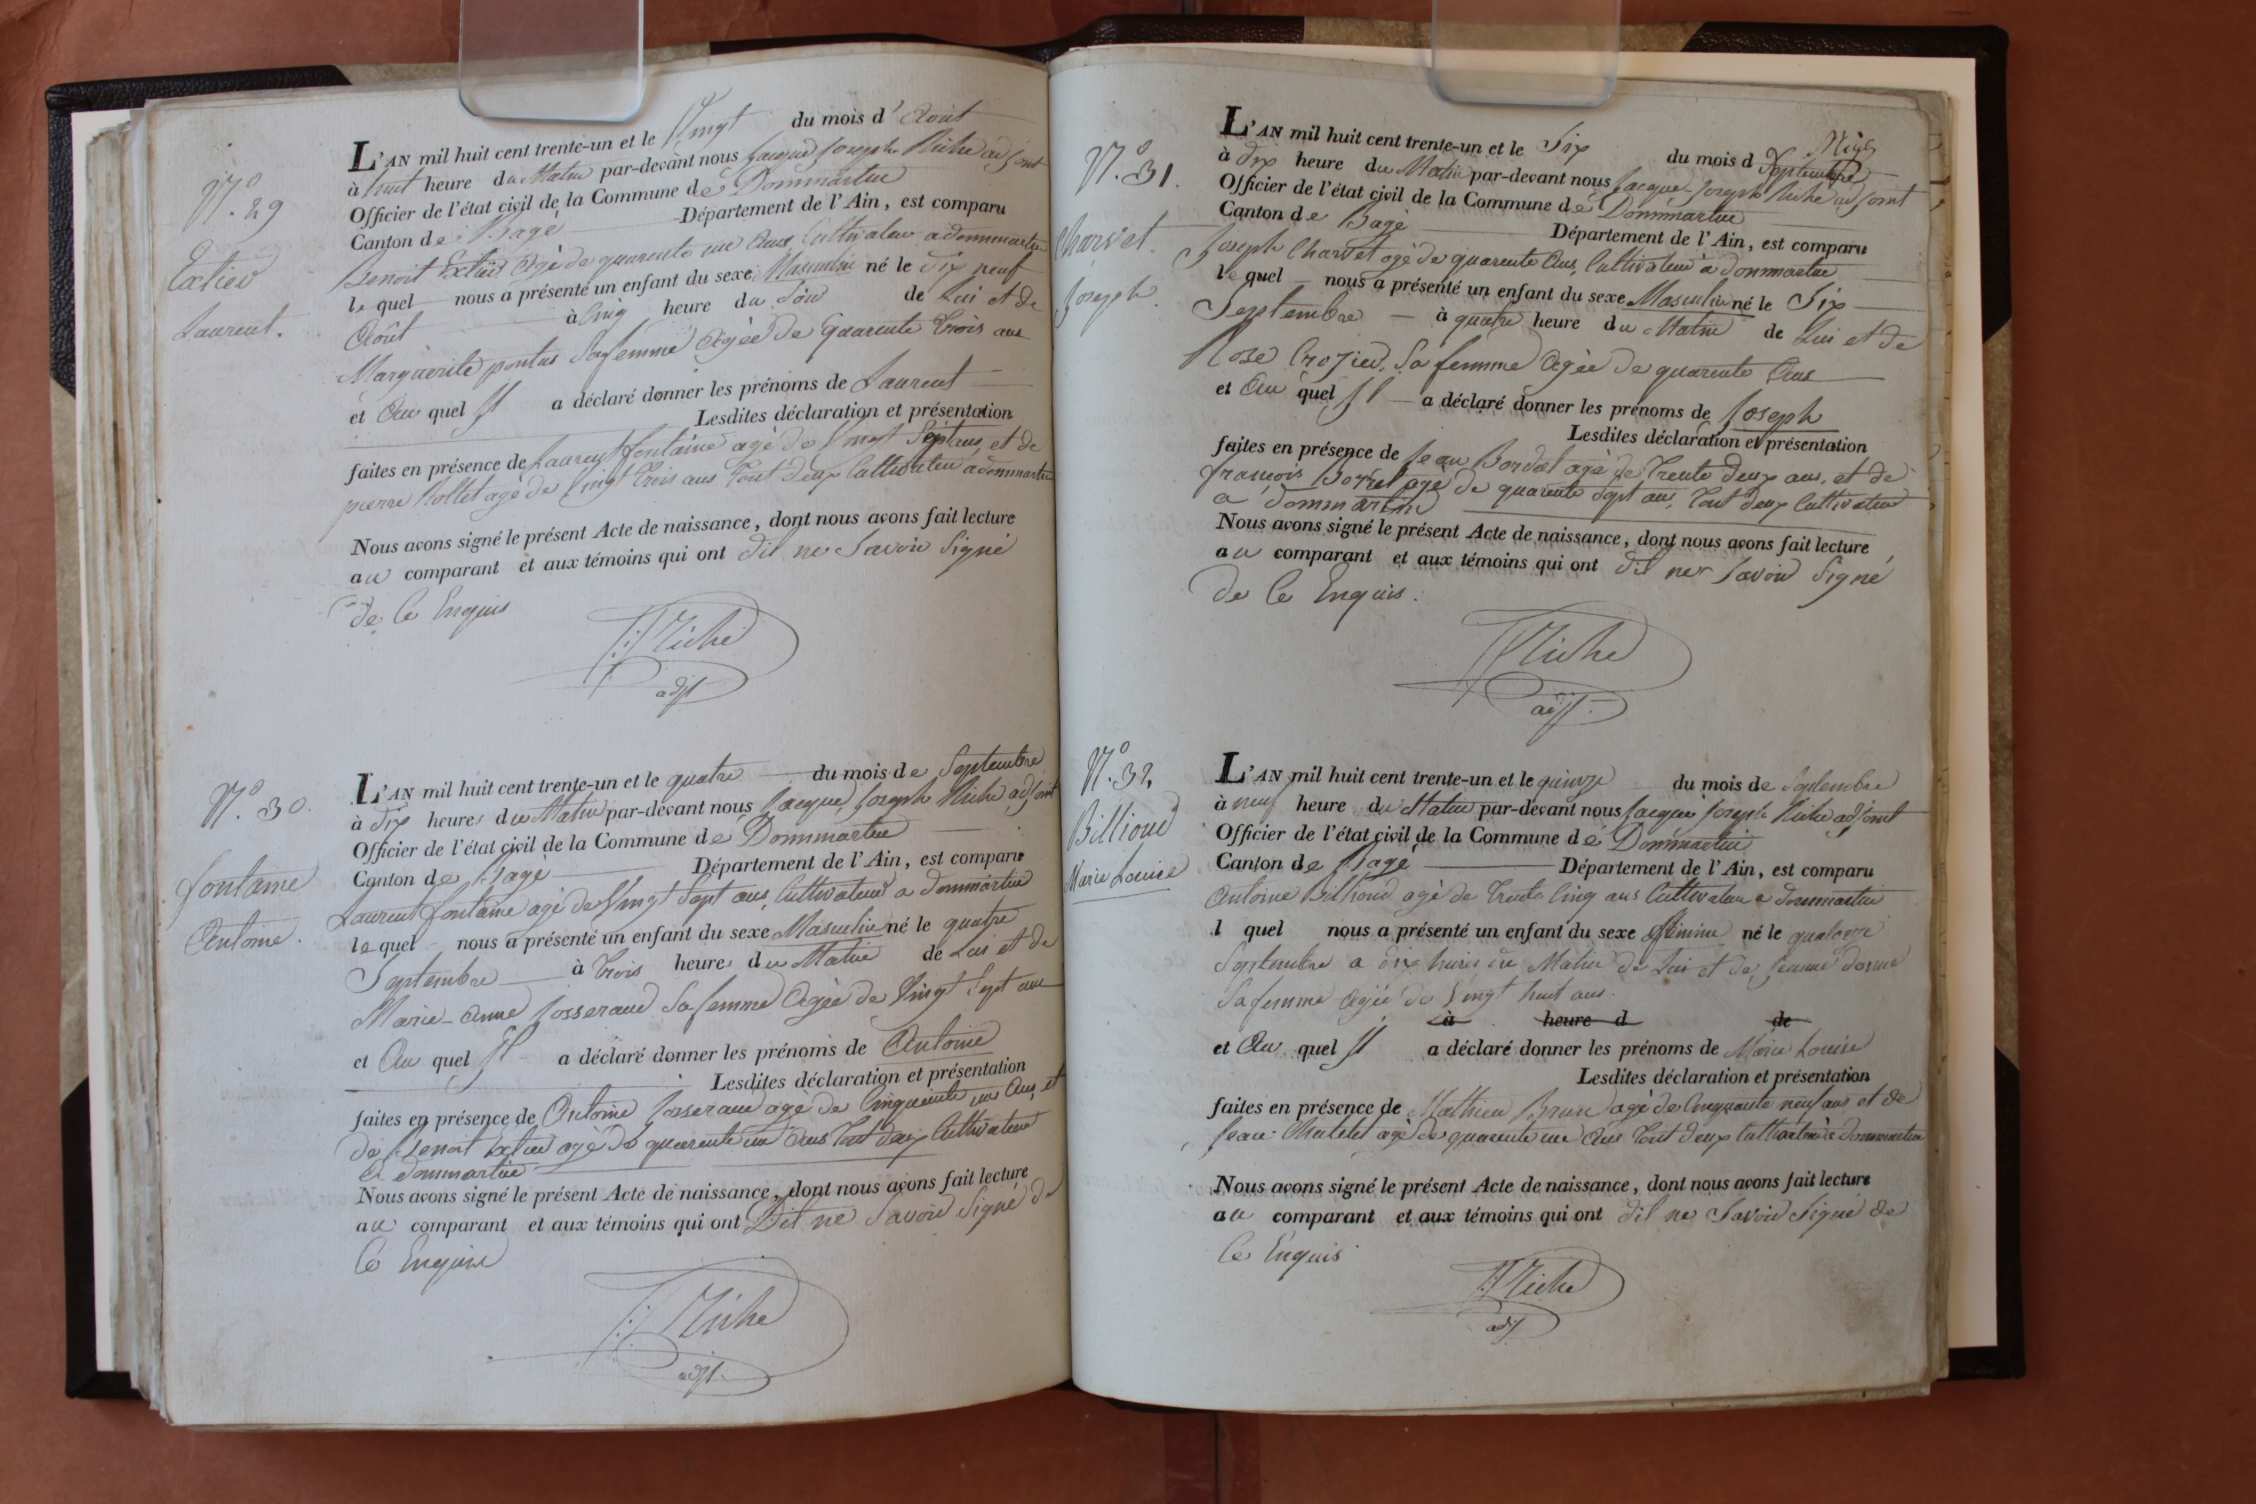 N.º 29
Extier
Laurent.
L'AN mil huit cent trente-un et le Vingt du mois d' Août
à huit heure du Matin par-devant nous Jacque Joseph Riche adjoint
Officier de l'état civil de la Commune de Dommartin
Canton de Bagé Département de l'Ain, est comparu
Benoit Extier Agé de quarente un Ans, Cultivateur a dommartin
le quel nous a présenté un enfant du sexe Masculin né le dix neuf
Août à Cinq heure du Soir de Lui et de
Marguerite pontus Sa femme Agée de Quarente trois ans
et Au quel Il a déclaré donner les prénoms de Laurent
Lesdites déclaration et présentation
faites en présence de Laurent fontaine agé de Vingt Sept ans, et de
pierre Rollet agé de Vingt trois ans tout deux Cultivateur a dommartin
Nous avons signé le présent Acte de naissance, dont nous avons fait lecture
au comparant et aux témoins qui ont dit ne Savoir Signé
de Ce Enquis
Riche
adjt
N.º 30.
fontaine
Antoine.
L'AN mil huit cent trente-un et le quatre du mois de Septembre
à dix heures du Matin par-devant nous Jacque Joseph Riche adjoint
Officier de l'état civil de la Commune de Dommartin
Canton de Bagé Département de l'Ain, est comparu
Laurent fontaine agé de Vingt Sept ans, Cultivateur a dommartin
le quel nous a présenté un enfant du sexe Masculin né le quatre
Septembre à trois heures du Matin de Lui et de
Marie-Anne Josserand Sa femme Agée de Vingt Sept ans
et Au quel Il a déclaré donner les prénoms de Antoine
Lesdites déclaration et présentation
faites en présence de Antoine Josserand agé de Cinquante un Ans, et
de Benoit Extier agé de quarente un Ans tout deux Cultivateur
a dommartin
Nous avons signé le présent Acte de naissance, dont nous avons fait lecture
au comparant et aux témoins qui ont Dit ne Savoir Signé de
Ce Enquis
Riche
adjt.
N.º 31.
Charvet.
Joseph.
L'AN mil huit cent trente-un et le Six du mois d Septembre
à dix heure du Matin par-devant nous Jacque Joseph Riche adjoint
Officier de l'état civil de la Commune de Dommartin
Canton de Bagé Département de l'Ain, est comparu
Joseph Charvet agé de quarente Ans, Cultivateur à dommartin
le quel nous a présenté un enfant du sexe Masculin né le Six
Septembre à quatre heure du Matin de Lui et de
Rose Crozier, Sa femme Agée de quarente Ans
et Au quel Il a déclaré donner les prénoms de Joseph
Lesdites déclaration et présentation
faites en présence de Jean Bordat agé de trente deux ans, et de
françois Borrel agé de quarente Sept ans, tout deux Cultivateur
a dommartin
Nous avons signé le présent Acte de naissance, dont nous avons fait lecture
au comparant et aux témoins qui ont dit ne Savoir Signé
de Ce Enquis.
Riche
adjt.
N.º 32
Billioud
Marie Louise
L'AN mil huit cent trente-un et le quinze du mois de Septembre
à neuf heure du Matin par-devant nous Jacque Joseph Riche adjoint
Officier de l'état civil de la Commune de Dommartin
Canton de Bagé Département de l'Ain, est comparu
Antoine Billioud agé de trente Cinq ans Cultivateur a dommartin
l quel nous a présenté un enfant du sexe féminin né le quatorze
Septembre a dix heures du Matin de Lui et de Jeanne
Sa femme Agée de Vingt huit ans.
à heure d de
et Au quel Il a déclaré donner les prénoms de Marie Louise
Lesdites déclaration et présentation
faites en présence de Mathieu Brun agé de Cinquante neuf ans et de
Jean Chatelet agé de quarente un Ans tout deux Cultivateur a dommartin
Nous avons signé le présent Acte de naissance, dont nous avons fait lecture
au comparant et aux témoins qui ont dit ne Savoir Signé de
Ce Enquis
Riche
adjt